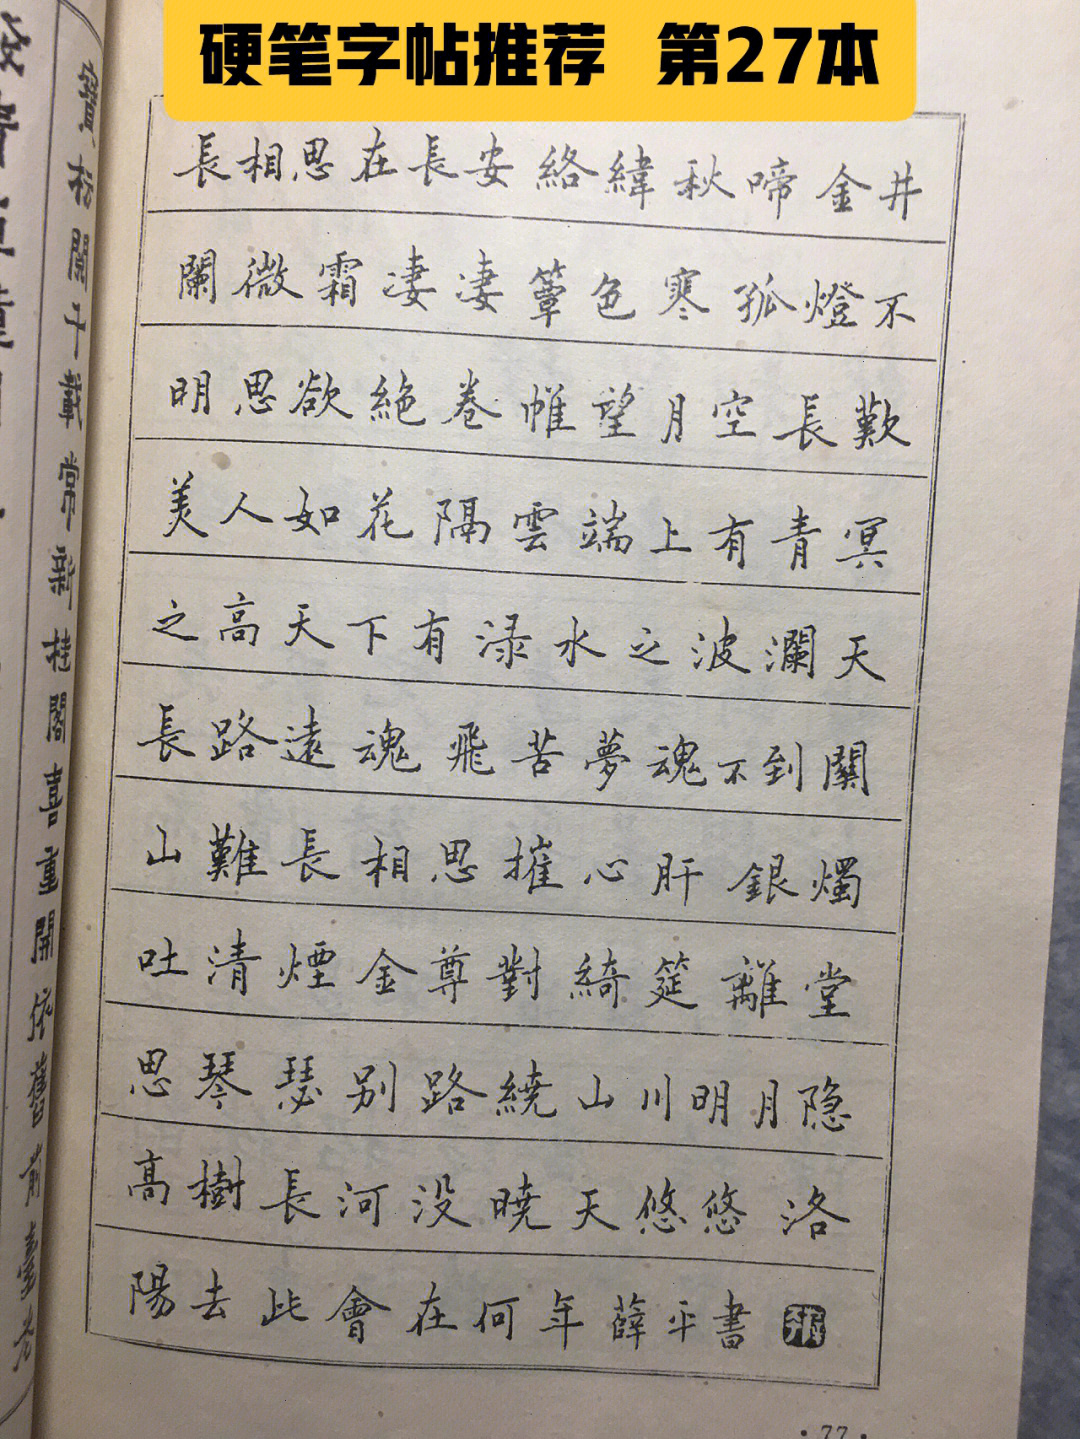 硬笔字帖推荐 第27本
長相思在長安絡緯秋啼金井
闌微霜凄凄簟色寒孤燈不
明思欲絶卷帷望月空長歎
美人如花隔雲端上有青冥
之高天下有渌水之波瀾天
長路遠魂飛苦夢魂不到關
山難長相思摧心肝銀燭
吐清煙金尊對綺筵離堂
思琴瑟别路繞山川明月隐
高樹長河没曉天悠悠洛
陽去此會在何年薛平書
寶坊關于載常新桂閣喜重開依舊前臺
·77·